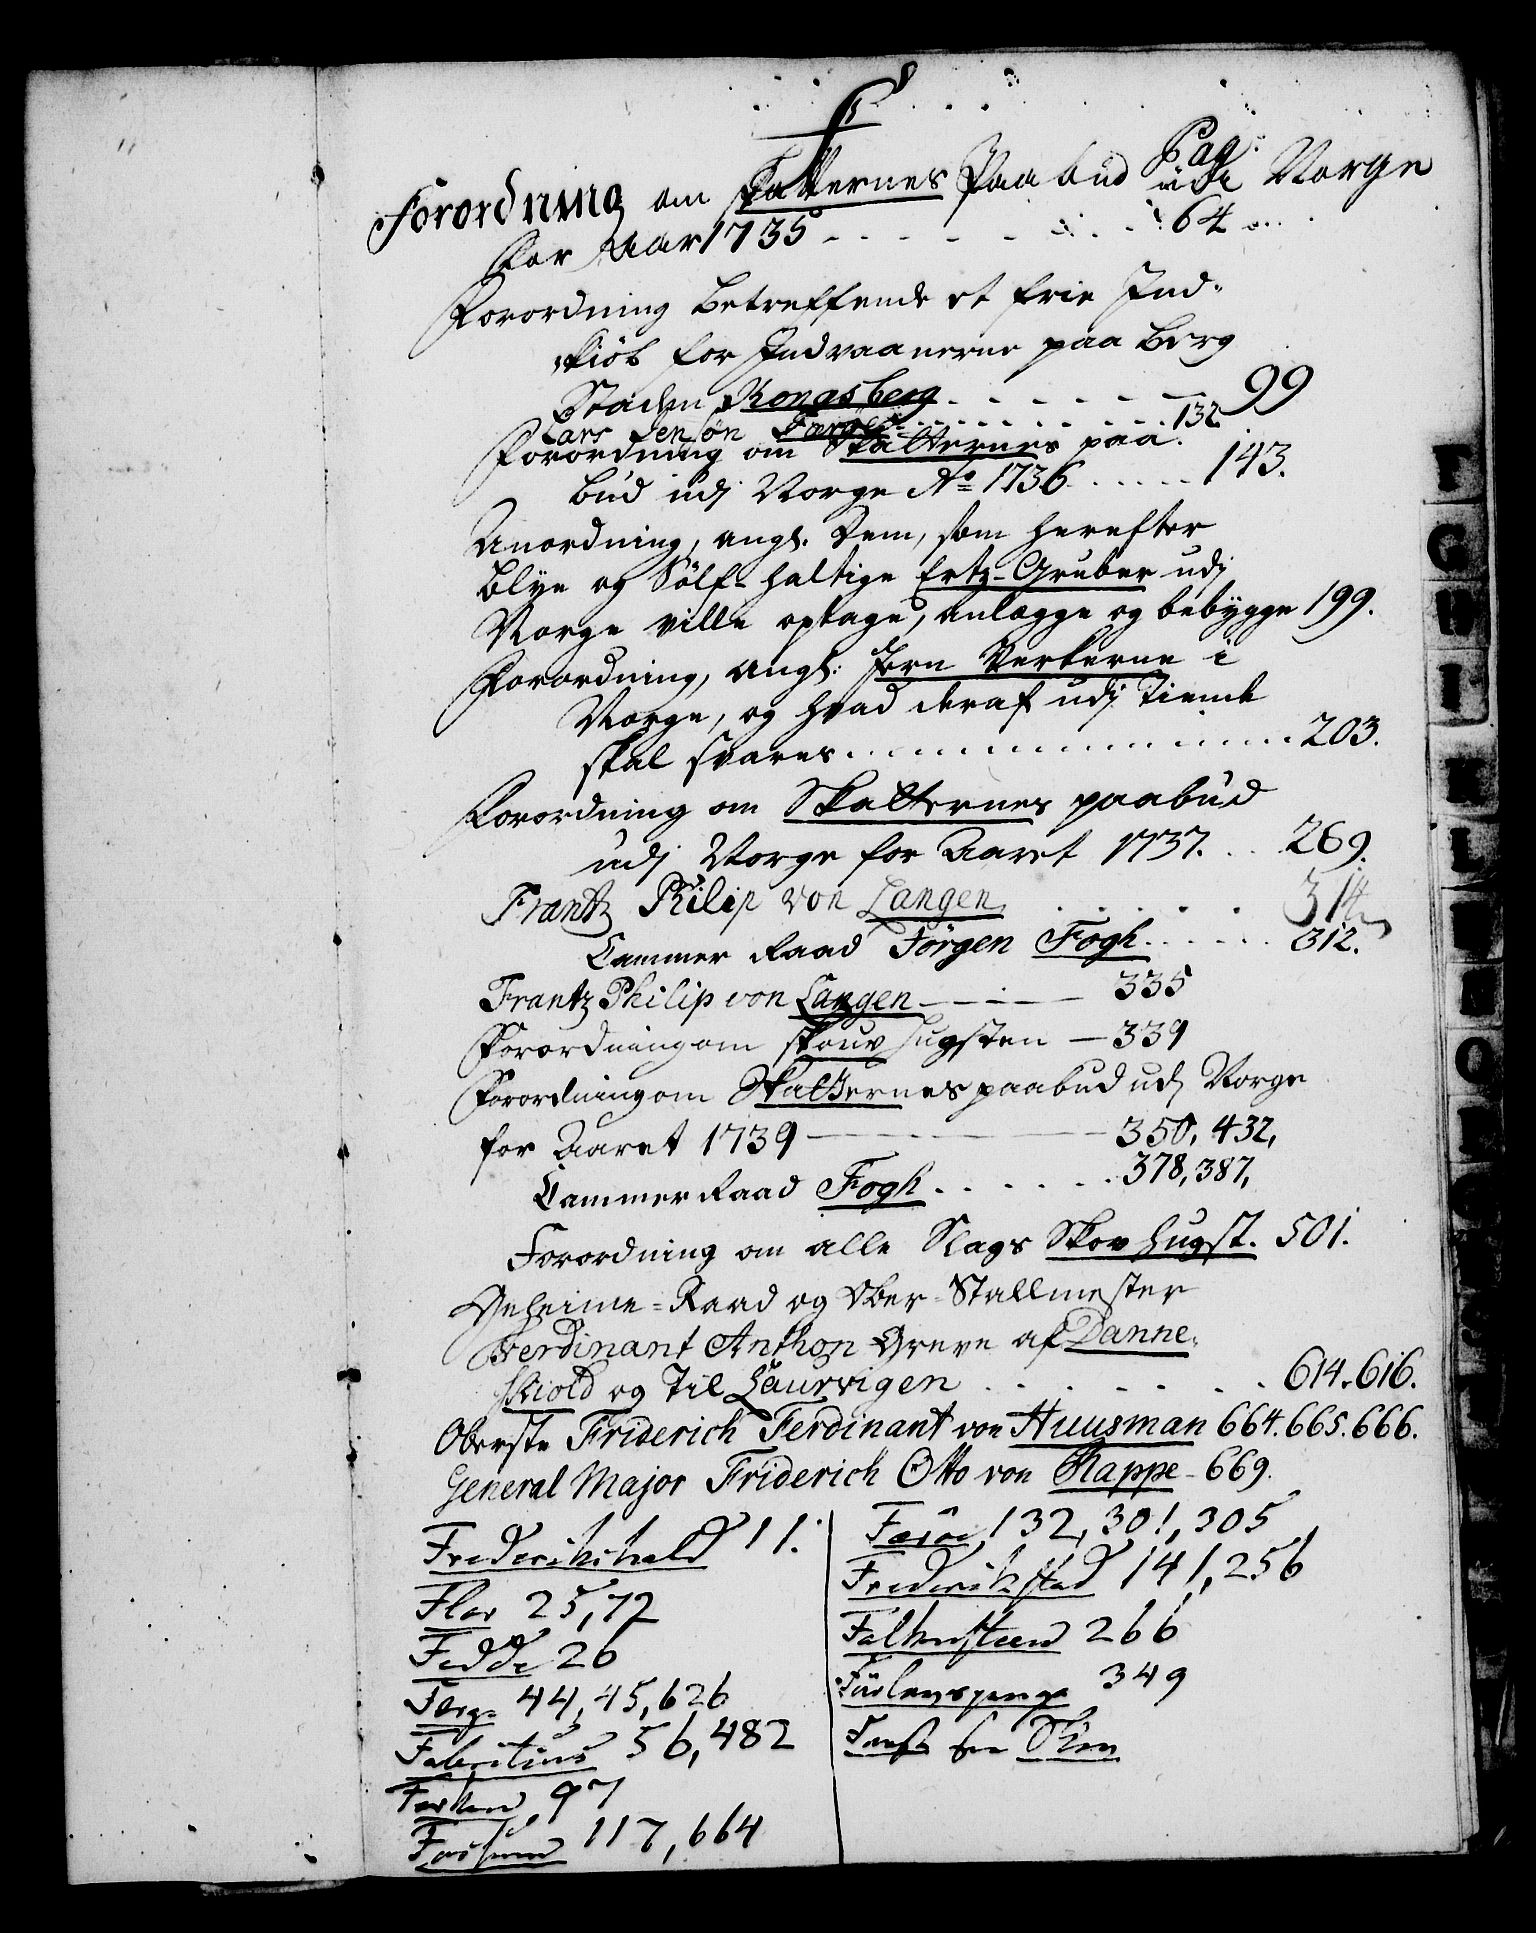 F
Pag:
Forordning om Skatternes Paabud udi Norge
for Aar 1735 64
Forordning betreffende et frie Ind-
kiöb for Indvaanerne paa Berg
Staden Kongsberg 99
Lars Jensøn Færge 132
Forordning om Skatternes paa-
bud udj Norge Aº 1736 143.
Anordning, angl. Dem, som herefter
Blye og Sölf-haltige Ertz-Gruber udj
Norge ville optage, anlægge og bebygge 199.
Forordning, angl: Jern Verkerne i
Norge, og hvad deraf udj Tiende
skal svares 203.
Forordning om Skatternes paabud
udj Norge for Aaret 1737. 269.
Frantz Philip von Langen 314
Cammer Raad Jørgen Fogh 312.
Frantz Philip von Langen 335
Forordning om Skouv Hugsten 339
Forordning om Skatternes paabud udj Norge
for Aaret 1739 350, 432,
Cammer Raad Fogh 378, 387,
Forordning om alle Slags Skov Hugst. 501.
Geheime-Raad og Ober-Stallmester
Ferdinant Anthon Greve af Danne-
skiold og Til Laurvigen 614. 616.
Oberste Friderich Ferdinant von Huusman 664. 665. 666.
General Major Friderich Otto von Rappe 669.
Frederikshald 11.
Flor 25, 72
Fedde 26
Færge 44, 45, 626
Fabritius 56, 482
97
Fossum 117, 664
Færøe 132, 301, 305
Frederikstad 141, 256
Falkensteen 266
349
F
G
H
I
K
L
M
N
O